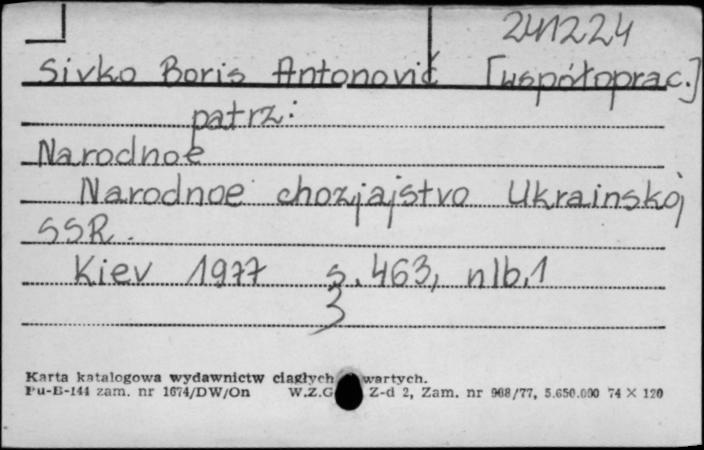 241224
Sivko Boris Antonović [współoprac.]
patrz:
Narodnoe
Narodnoe chozjajstvo Ukrainskoj
SSR.
Kiev 1977 s. 463, nlb. 1
3
Karta katalogowa wydawnictw ciągłych wartych.
Pu-B-144 zam. nr 1674/DW/On W.Z.G Z-d 2, Zam. nr 908/77, 5.650.000 74 × 120